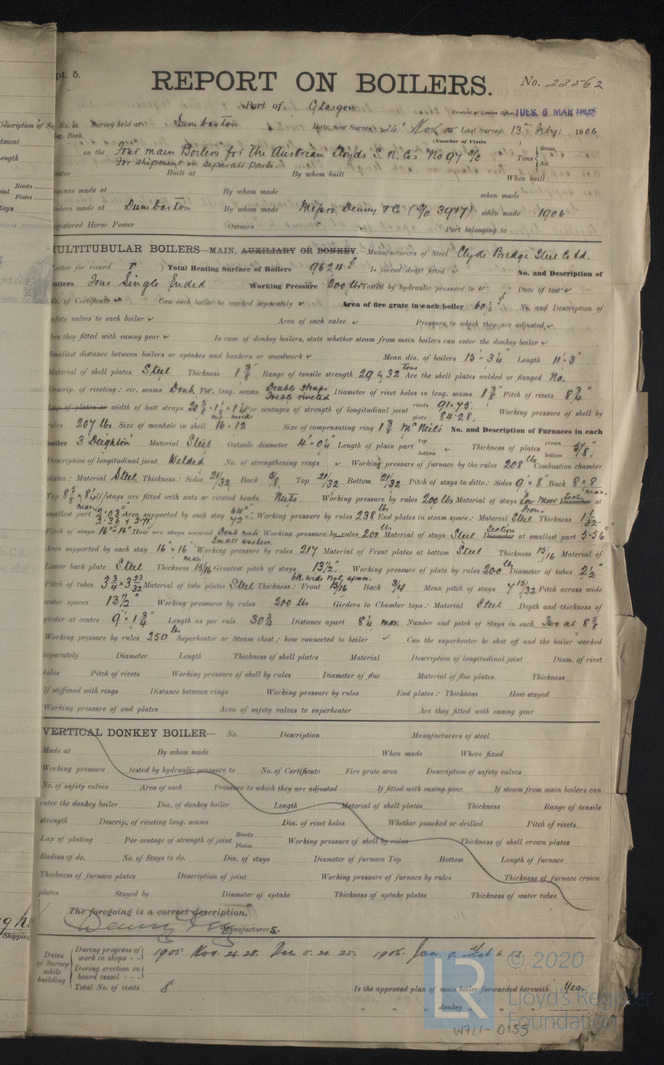 pt. 5.
REPORT ON BOILERS.
No. 23562
Port of Glasgow
TUES. 6 MAR 1906
No. in Survey held at Dumbarton Date, first Survey 24th Nov. 05 Last Survey 13th Feby: 1906
Book. (Number of Visits
on the Four main Boilers for the Austrian Lloyds S. N. Co's No 97 S/S Tons { Gross Net
For shipment in separate parts
Built at By whom built When built
Engines made at By whom made when made
Boilers made at Dumbarton By whom made Messrs Denny & Co (No 3947) when made 1906
Registered Horse Power Owners Port belonging to
MULTITUBULAR BOILERS—MAIN, AUXILIARY OR DONKEY.—Manufacturers of Steel Clyde Bridge Steel Co Ld.
Letter for record r ) Total Heating Surface of Boilers 9624 Is forced draft fitted ✓ No. and Description of
Boilers Four Single Ended Working Pressure 200 lbs Tested by hydraulic pressure to ✓ Date of test ✓
No. of Certificate ✓ Can each boiler be worked separately ✓ Area of fire grate in each boiler 60½ No. and Description of
safety valves to each boiler ✓ Area of each valve ✓ Pressure to which they are adjusted ✓
Are they fitted with easing gear ✓ In case of donkey boilers, state whether steam from main boilers can enter the donkey boiler ✓
Smallest distance between boilers or uptakes and bunkers or woodwork ✓ Mean dia. of boilers 15'-3¼" Length 11'-3"
Material of shell plates Steel Thickness 1 3/8 Range of tensile strength 29 & 32 tons Are the shell plates welded or flanged No.
Descrip. of riveting: cir. seams Doub. riv. long. seams Double Strap. Treble riveted Diameter of rivet holes in long. seams 1 3/8" Pitch of rivets 8 3/4"
Lap of plates or width of butt straps Per centages of strength of longitudinal joint rivets 91.75 plate 84.28. Working pressure of shell by
rules 207 lbs Size of manhole in shell 16 - 12 Size of compensating ring McNeils No. and Description of Furnaces in each
boiler 3 Deighton Material Steel Outside diameter 4'-0¼" Length of plain part top bottom Thickness of plates crown bottom 5/8"
Description of longitudinal joint Welded No. of strengthening rings ✓ Working pressure of furnace by the rules 208 lbs Combustion chamber
plates: Material Steel Thickness: Sides 21/32 Back 5/8 Top 21/32 Bottom 21/32 Pitch of stays to ditto: Sides 9 × 8 Back 8 × 8
Top If stays are fitted with nuts or riveted heads Nuts Working pressure by rules 200 lbs Material of stays
smallest part Area supported by each stay Working pressure by rules 238 lbs End plates in steam space: Material Steel Thickness
Pitch of stays 16" × 16" How are stays secured Doub nuts Small washer. Working pressure by rules 200 lbs Material of stays Steel at smallest part 5.56
Area supported by each stay 16 × 16 Working pressure by rules 217 Material of Front plates at bottom Steel Thickness 15/16 Material of
Lower back plate Steel Thickness 15/16 Greatest pitch of stays 13½" Working pressure of plate by rules 200 lbs Diameter of tubes 2½"
Pitch of tubes Material of tube plates Steel Thickness: Front 15/16 Back 3/4 Mean pitch of stays 7 15/32 Pitch across wide
water spaces 13½" Working pressures by rules 200 lbs Girders to Chamber tops: Material Steel Depth and thickness of
girder at centre 9" - 1 3/4" Length as per rule 30 3/4 Distance apart 8¼ max Number and pitch of Stays in each Two at 8 5/8
Working pressure by rules 250 lbs Superheater or Steam chest; how connected to boiler ✓ Can the superheater be shut off and the boiler worked
separately Diameter Length Thickness of shell plates Material Description of longitudinal joint Diam. of rivet
holes Pitch of rivets Working pressure of shell by rules Diameter of flue Material of flue plates Thickness
If stiffened with rings Distance between rings Working pressure by rules End plates: Thickness How stayed
Working pressure of end plates Area of safety valves to superheater Are they fitted with easing gear
VERTICAL DONKEY BOILER— No. Description Manufacturers of steel
Made at By whom made When made Where fixed
Working pressure tested by hydraulic pressure to No. of Certificate Fire grate area Description of safety valves
No. of safety valves Area of each Pressure to which they are adjusted If fitted with easing gear If steam from main boilers can
enter the donkey boiler Dia. of donkey boiler Length Material of shell plates Thickness Range of tensile
strength Descrip. of riveting long. seams Dia. of rivet holes Whether punched or drilled Pitch of rivets
Lap of plating Per centage of strength of joint Rivets Plates Working pressure of shell by rules Thickness of shell crown plates
Radius of do. No. of Stays to do. Dia. of stays Diameter of furnace Top Bottom Length of furnace
Thickness of furnace plates Description of joint Working pressure of furnace by rules Thickness of furnace crown
plates Stayed by Diameter of uptake Thickness of uptake plates Thickness of water tubes
The foregoing is a correct description,
Denny & Co Manufacturers.
Dates of Survey while building
During progress of work in shops - - 1905. Nov. 24. 28. Dec 5. 20. 25. 1906. Jan. 9. Feb 6. 13
During erection on board vessel - - -
Total No. of visits 8 Is the approved plan of main boiler forwarded herewith Yes.
" " " donkey " " "
© 2020
LR Lloyd's Register Foundation
W711-0155